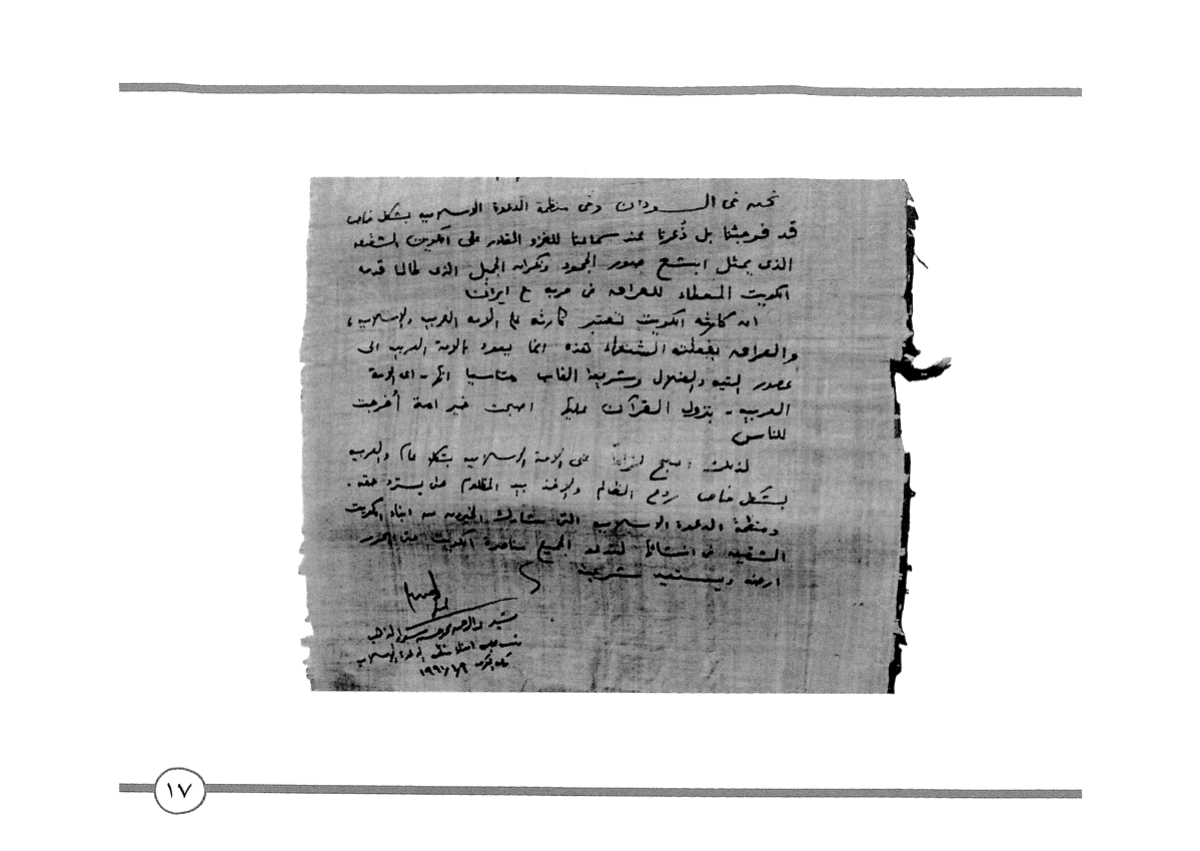 نحن في السودان وفي منظمة الدعوة الاسلامية بشكل خاص
قد فوجئنا بل ذُعرنا عند سماعنا للغزو الغادر على الكويت الشقيقه
الذي يمثل ابشع صور الجحود ونكران الجميل الذي طالما قدمه
الكويت المعطاء للعراق في حربه مع ايران
ان كارثه الكويت تعتبر كارثه على الامه العربيه والاسلاميه،
والعراق بفعلته الشنعاء هذه انما يعود بالامة العربيه الى
عصور التيه والضلال وشريعة الغاب متناسيا انها - اى الامة
العربيه - بنزول القرآن عليها اصبحت خير امة أُخرجت
للناس
لذلك اصبح لزاماً على الامة الاسلاميه بشكل عام والعربيه
بشكل خاص ردع الظالم والاخذ بيد المظلوم حتى يسترد حقه.
ومنظمة الدعوة الاسلاميه التى ستشارك الخيرين من ابناء الكويت
الشقيقه في لتدعو الجميع مناصرة الكويت حتى تحرر
ارضه ويستعيد شرعيته
سوار الذهب
منظمة الدعوة الاسلاميه
١٧